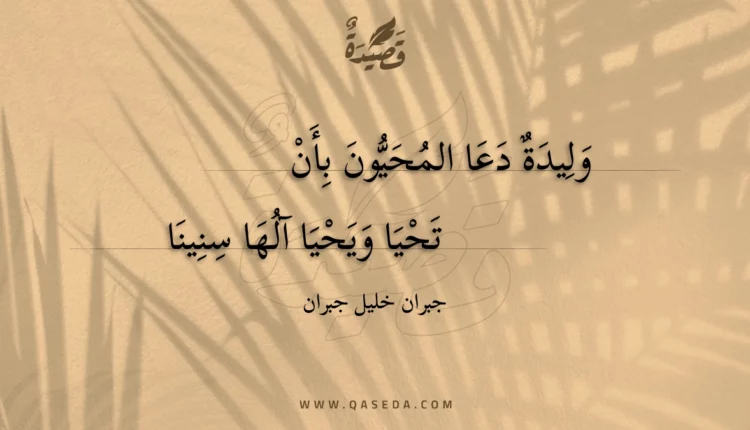 قَصِيْدَةٌ
وَلِيدَةٌ دَعَا المُحَيُّونَ بِأَنْ
تَحْيَا وَيَحْيَا آلُهَا سِنِينَا
جبران خليل جبران
WWW.QASEDA.COM